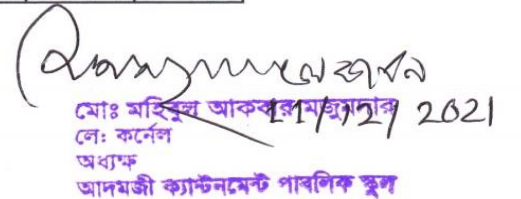 লে কর্নেল
মোঃ মহিবুল আকবর মজুমদার
11/12/2021
লে: কর্নেল
অধ্যক্ষ
আদমজী ক্যান্টনমেন্ট পাবলিক স্কুল